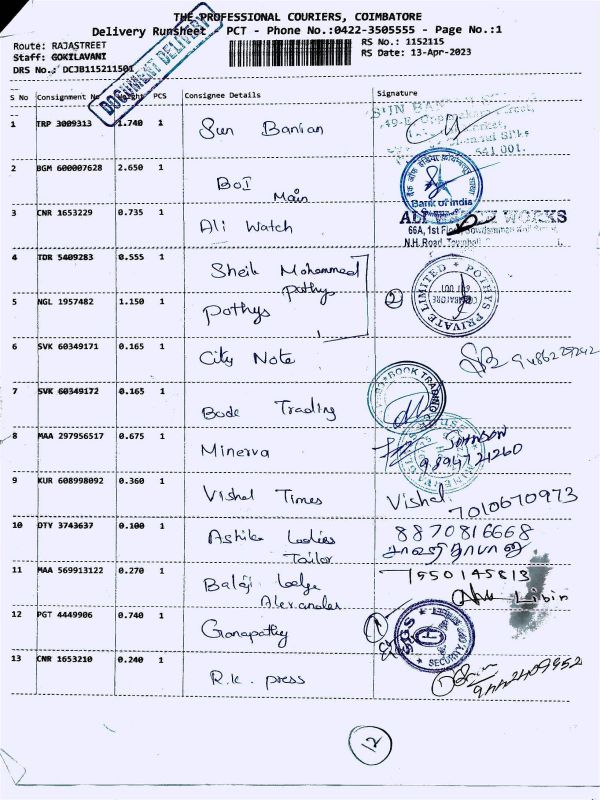 THE PROFESSIONAL COURIERS, COIMBATORE
Delivery Runsheet PCT - Phone No.:0422-3505555 - Page No.:1
Route: RAJASTREET RS No.: 1152115
Staff: GOKILAVANI RS Date: 13-Apr-2023
DRS No.: DCJB115211501
DOCUMENT DELIVERY
S No Consignment No Weight PCS Consignee Details Signature
1 TRP 3009313 1.740 1 Sun Banian
641 001.
2 BGM 600007628 2.650 1 BOI
Main
Bank of India
3 CNR 1653229 0.735 1 Ali Watch
ALI WATCH WORKS
66A, 1st Floor
N.H. Road, Townhall
4 TDR 5409283 0.555 1 Sheik Mohammed
Pothys
POTHYS PRIVATE LIMITED
COIMBATORE
641 001
5 NGL 1957482 1.150 1 Pothys 2
6 SVK 60349171 0.165 1 City Note
7 SVK 60349172 0.165 1 Book Trading
BOOK TRADING
8 MAA 297956517 0.675 1 Minerva
Johnson
9894721260
9 KUR 608998092 0.360 1 Vishal Times Vishal.
7010670973
10 DTY 3743637 0.100 1 Ashika Ladies
Tailor
8870816668
11 MAA 569913122 0.270 1 Balaji Lodge 7550145813
Alexander Libin
12 PGT 4449906 0.740 1 Ganapathy 1
SGS
SECURITY
13 CNR 1653210 0.240 1 R.K. press
9442409952
12